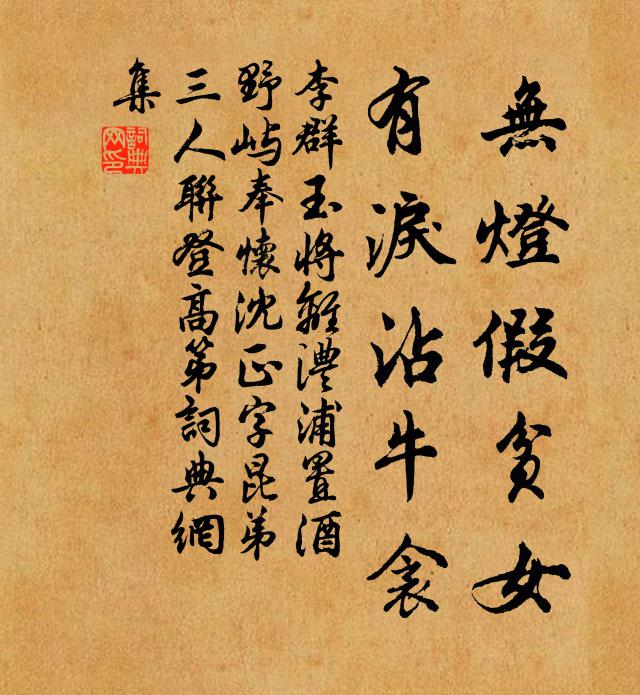 無燈假貧女
有淚沾牛衾
李群玉將離澧浦置酒
野嶼奉懷沈正字昆弟
三人聯登高第詞典網
集
詞典網印